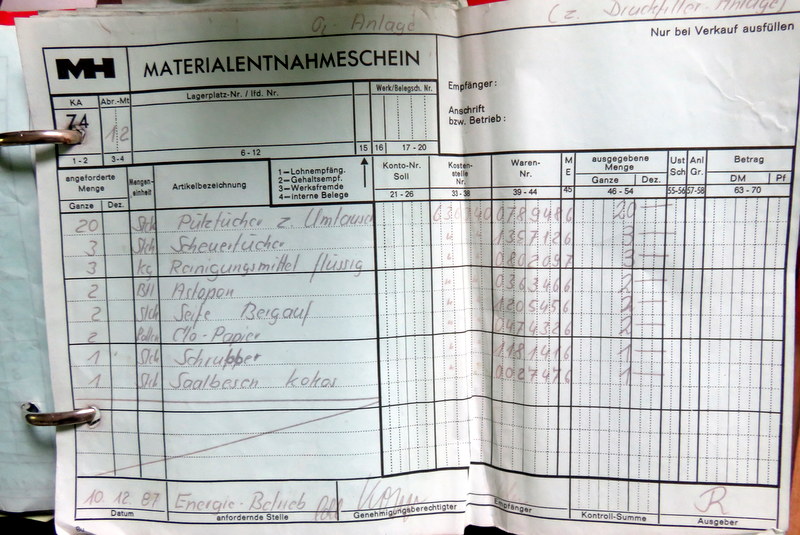 Anlage
(z. Druckfilter-Anlage)
MH MATERIALENTNAHMESCHEIN
Nur bei Verkauf ausfüllen
KA Abr.-Mt Lagerplatz-Nr. / lfd. Nr. Werk/Belegsch. Nr.
74 12
Empfänger:
Anschrift
bzw. Betrieb:
1-2 3-4 6-12 15 16 17-20
angeforderte Menge Mengeneinheit Artikelbezeichnung
1=Lohnempfäng.
2=Gehaltsempf.
3=Werksfremde
4=interne Belege
Konto-Nr. Soll Kostenstelle Nr. Waren-Nr. ME ausgegebene Menge Ust Sch Anl Gr. Betrag
21-26 33-38 39-44 45 46-54 55-56 57-58 63-70
Ganze Dez. Ganze Dez. DM Pf
20 Stck Putztücher z. Umtausch 0789486 20
3 Stck Scheuertücher " 1357126 3
3 kg Reinigungsmittel flüssig " 0802097 3
2 " 0363466 2
2 Stck Seife Bergauf " 1205456 2
2 Clo-Papier " 0474326 2
1 Stck Schrubber " 1181416 1
1 Stck Saalbesen kokos " 0027476 1
10.12.87 Energie-Betrieb R
Datum anfordernde Stelle Genehmigungsberechtigter Empfänger Kontroll-Summe Ausgeber